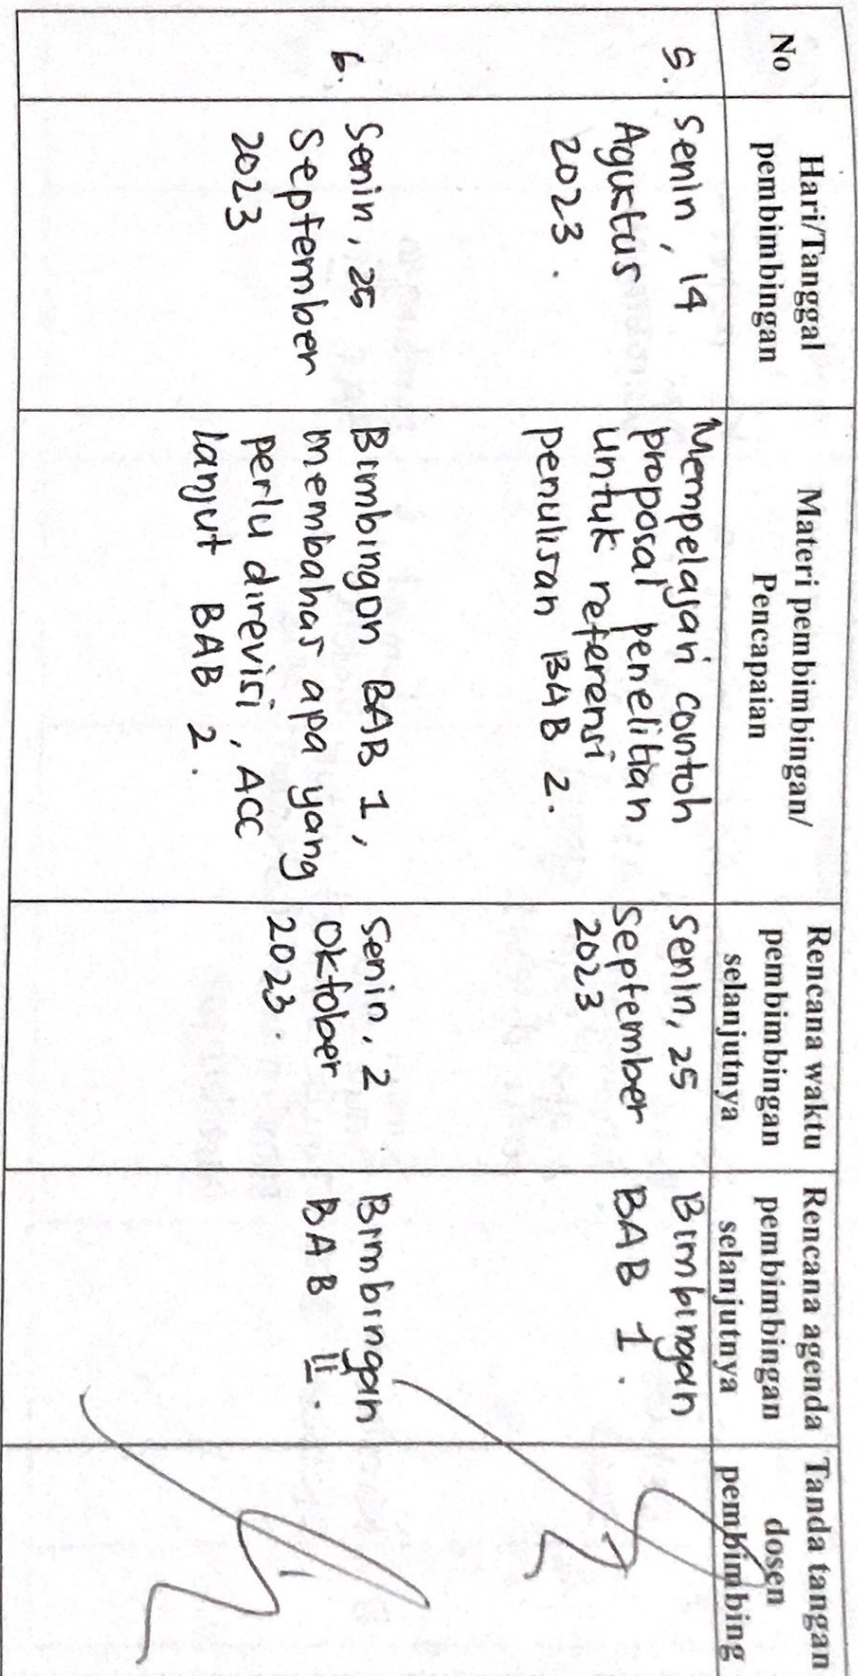 No
Hari/Tanggal
pembimbingan
Materi pembimbingan/
Pencapaian
Rencana waktu
pembimbingan
selanjutnya
Rencana agenda
pembimbingan
selanjutnya
Tanda tangan
dosen
pembimbing
5.
Senin, 14
Agustus
2023.
Mempelajari contoh
proposal penelitian
untuk referensi
penulisan BAB 2.
Senin, 25
September
2023
Bimbingan
BAB 1.
6.
Senin, 25
September
2023
Bimbingan BAB 1,
membahas apa yang
perlu direvisi, ACC
lanjut BAB 2.
Senin, 2
Oktober
2023.
Bimbingan
BAB II.